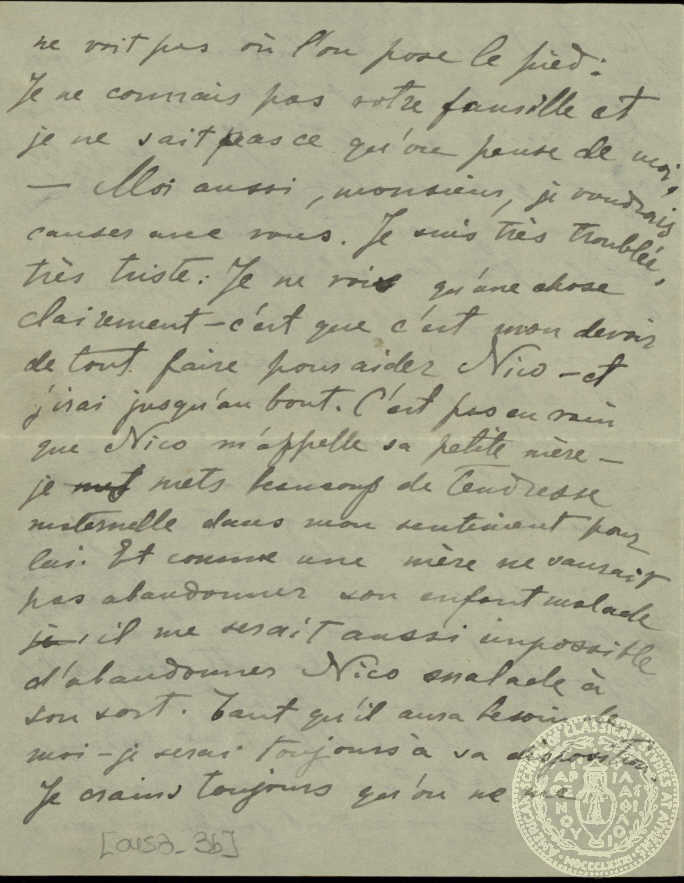 ne voit pas où l'on pose le pied.
Je ne connais pas votre famille et
je ne sait pas ce qu'on pense de moi.
— Moi aussi, monsieur, je voudrais
causer avec vous. Je suis très troublée,
très triste. Je ne vois qu'une chose
clairement – c'est que c'est mon devoir
de tout faire pour aider Nico – et
j'irai jusqu'au bout. C'est pas en vain
que Nico m'appelle sa petite mère –
je met mets beaucoup de tendresse
maternelle dans mon sentiment pour
lui. Et comme une mère ne saurait
pas abandonner son enfant malade
je, il me serait aussi impossible
d'abandonner Nico malade à
son sort. Tant qu'il aura besoin de
moi – je serai toujours à sa disposition.
Je crains toujours qu'on ne me
[0152_3b]
AMERICAN SCHOOL OF CLASSICAL STUDIES AT ATHENS
MDCCCLXXXI